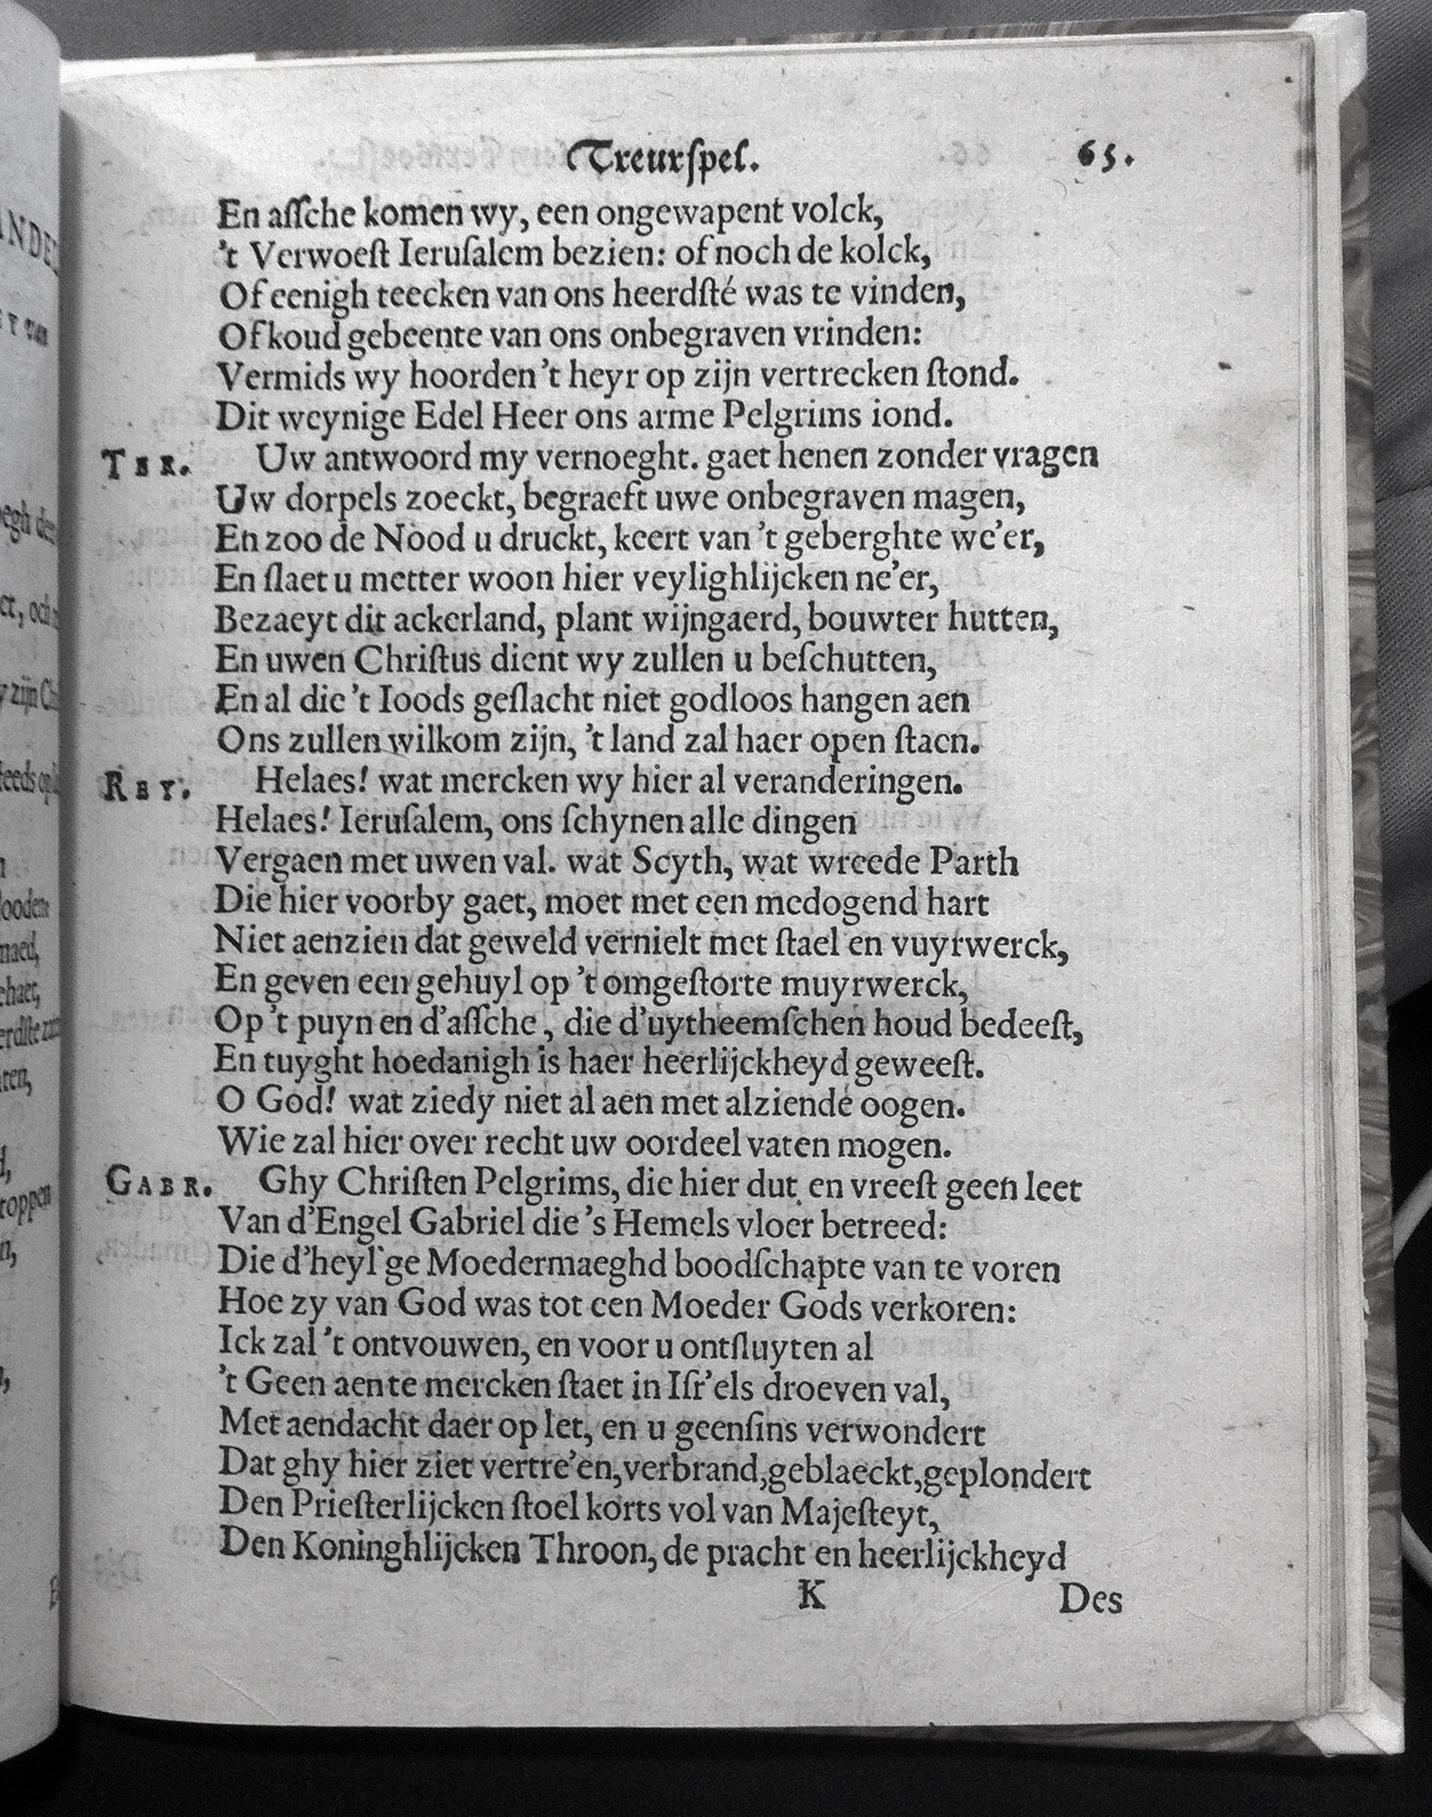 Treurſpel. 65.
En aſſche komen wy, een ongewapent volck,
't Verwoeſt Ieruſalem bezien: of noch de kolck,
Of eenigh teecken van ons heerdſté was te vinden,
Of koud gebeente van ons onbegraven vrinden:
Vermids wy hoorden 't heyr op zijn vertrecken ſtond.
Dit weynige Edel Heer ons arme Pelgrims iond.
TER. Uw antwoord my vernoeght. gaet henen zonder vragen
Uw dorpels zoeckt, begraeft uwe onbegraven magen,
En zoo de Nood u druckt, keert van 't geberghte we'er,
En ſlaet u metter woon hier veylighlijcken ne'er,
Bezaeyt dit ackerland, plant wijngaerd, bouwter hutten,
En uwen Chriſtus dient wy zullen u beſchutten,
En al die 't Ioods geſlacht niet godloos hangen aen
Ons zullen wilkom zijn, 't land zal haer open ſtaen.
REY. Helaes! wat mercken wy hier al veranderingen.
Helaes! Ieruſalem, ons ſchynen alle dingen
Vergaen met uwen val. wat Scyth, wat wreede Parth
Die hier voorby gaet, moet met een medogend hart
Niet aenzien dat geweld vernielt met ſtael en vuyrwerck,
En geven een gehuyl op 't omgeſtorte muyrwerck,
Op 't puyn en d'aſſche, die d'uytheemſchen houd bedeeſt,
En tuyght hoedanigh is haer heerlijckheyd geweeſt.
O God! wat ziedy niet al aen met alziende oogen.
Wie zal hier over recht uw oordeel vaten mogen.
GABR. Ghy Chriſten Pelgrims, die hier dut en vreeſt geen leet
Van d'Engel Gabriel die 's Hemels vloer betreed:
Die d'heyl'ge Moedermaeghd boodſchapte van te voren
Hoe zy van God was tot een Moeder Gods verkoren:
Ick zal 't ontvouwen, en voor u ontſluyten al
't Geen aen te mercken ſtaet in Iſr'els droeven val,
Met aendacht daer op let, en u geenſins verwondert
Dat ghy hier ziet vertre'en, verbrand, geblaeckt, geplondert
Den Prieſterlijcken ſtoel korts vol van Majeſteyt,
Den Koninghlijcken Throon, de pracht en heerlijckheyd
K Des